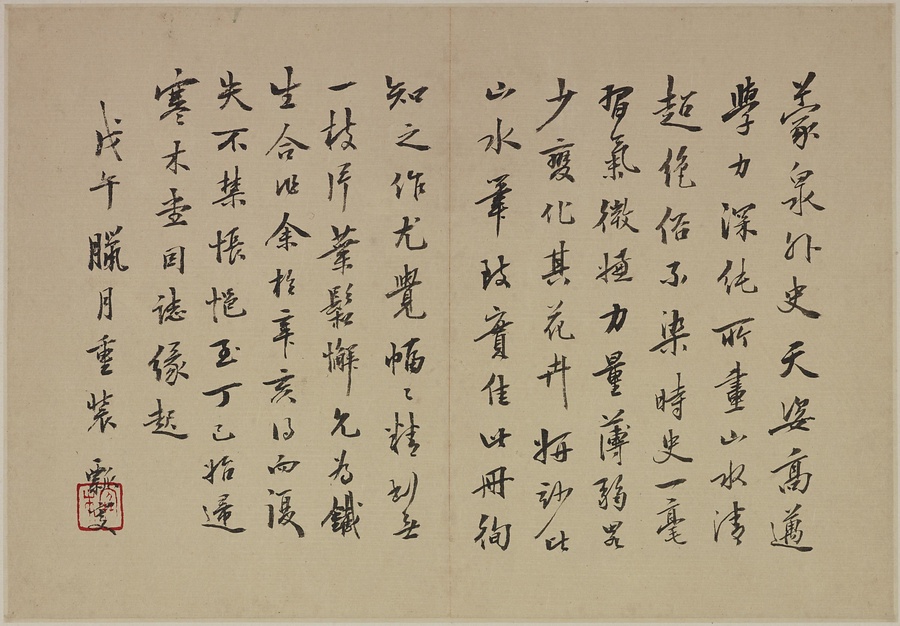 蒙泉外史天姿高邁
學力深純所畫山水清
超絕俗不染時史一毫
習氣微嫌力量薄弱畧
少變化其花卉妍妙比
山水筆致實佳此冊徇
知之作尤覺幅〻精到無
一枝片葉鬆懈允為鐵
生合作余於辛亥得而復
失不禁悵悒至丁巳始還
寒木堂因誌緣起
戊午臘月重裝 瓢叟